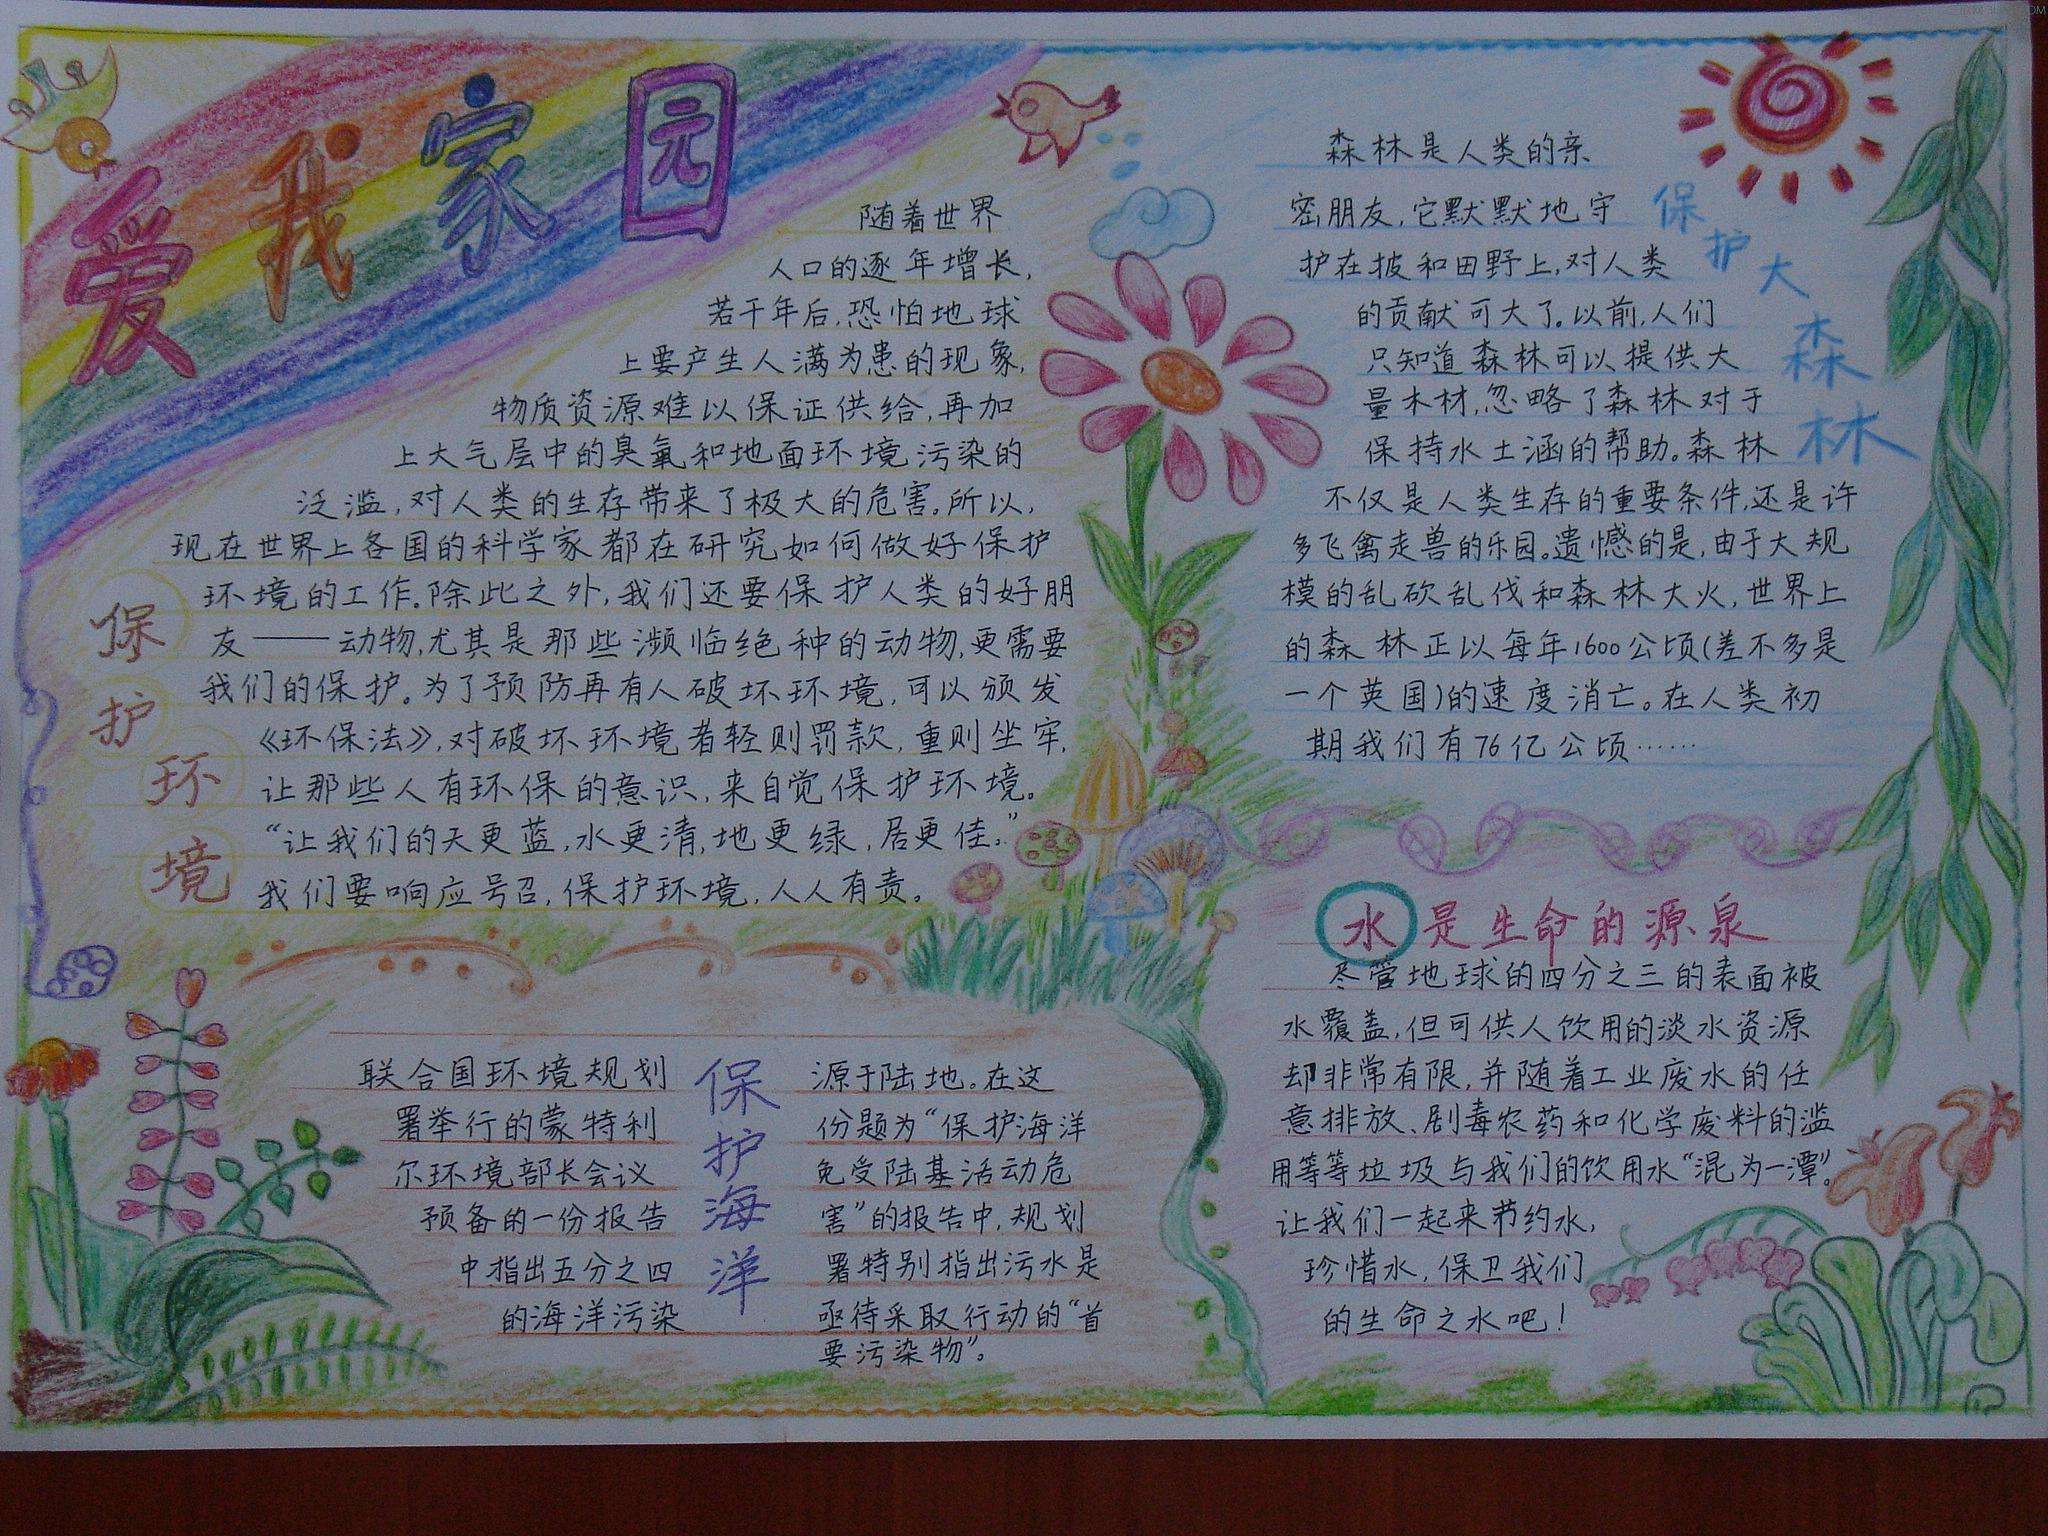 爱我家园
保护环境
随着世界
人口的逐年增长,
若干年后,恐怕地球
上要产生人满为患的现象,
物质资源难以保证供给,再加
上大气层中的臭氧和地面环境污染的
泛滥,对人类的生存带来了极大的危害。所以,
现在世界上各国的科学家都在研究如何做好保护
环境的工作。除此之外,我们还要保护人类的好朋
友——动物,尤其是那些濒临绝种的动物,更需要
我们的保护。为了预防再有人破坏环境,可以颁发
《环保法》,对破坏环境者轻则罚款,重则坐牢,
让那些人有环保的意识,来自觉保护环境。
“让我们的天更蓝,水更清,地更绿,居更佳。”
我们要响应号召,保护环境,人人有责。
保护海洋
联合国环境规划
署举行的蒙特利
尔环境部长会议
预备的一份报告
中指出五分之四
的海洋污染
源于陆地。在这
份题为“保护海洋
免受陆基活动危
害”的报告中,规划
署特别指出污水是
亟待采取行动的“首
要污染物”。
保护大森林
森林是人类的亲
密朋友,它默默地守
护在披和田野上,对人类
的贡献可大了。以前,人们
只知道森林可以提供大
量木材,忽略了森林对于
保持水土涵的帮助。森林
不仅是人类生存的重要条件,还是许
多飞禽走兽的乐园。遗憾的是,由于大规
模的乱砍乱伐和森林大火,世界上
的森林正以每年1600公顷(差不多是
一个英国)的速度消亡。在人类初
期我们有76亿公顷……
水是生命的源泉
尽管地球的四分之三的表面被
水覆盖,但可供人饮用的淡水资源
却非常有限,并随着工业废水的任
意排放、剧毒农药和化学废料的滥
用等等垃圾与我们的饮用水“混为一潭”。
让我们一起来节约水,
珍惜水,保卫我们
的生命之水吧!